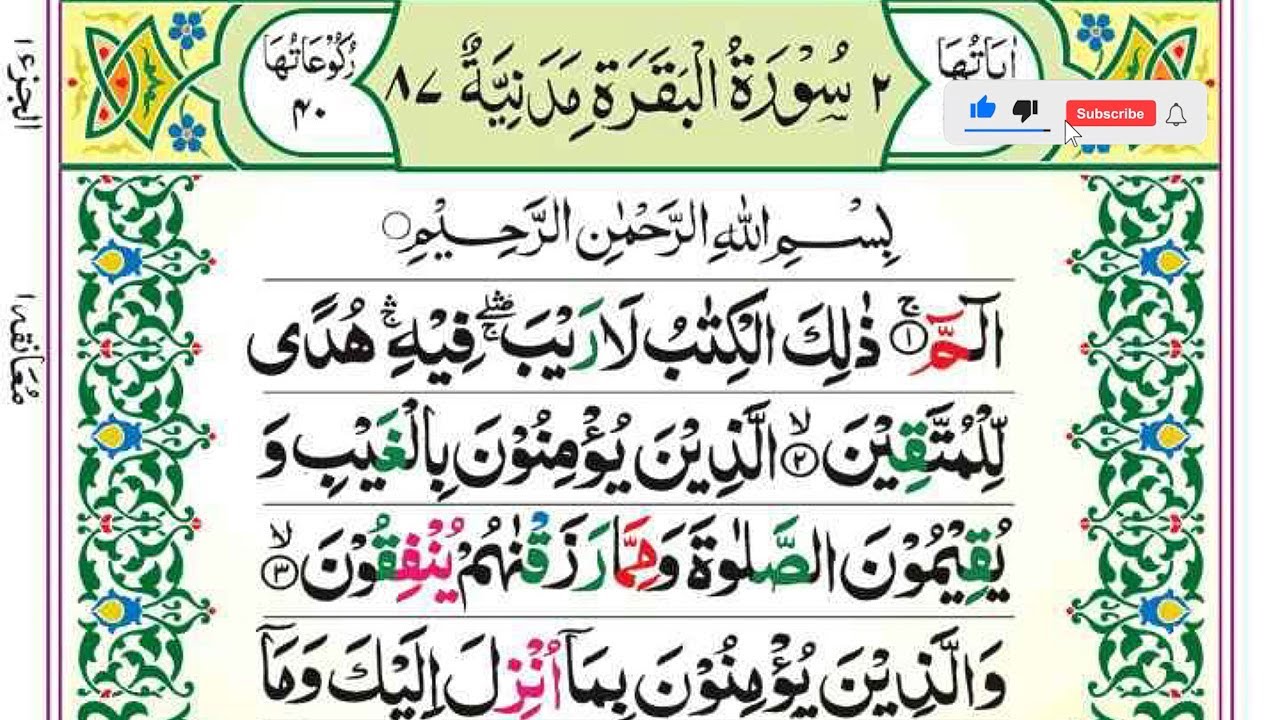 اٰيَاتُهَا
٢ سُوْرَةُ الْبَقَرَةِ مَدَنِيَّةٌ ٨٧
رُكُوْعَاتُهَا
٤٠
Subscribe
الجزء ١
بِسْمِ اللّٰهِ الرَّحْمٰنِ الرَّحِيْمِ
الٓمّٓ ۚ ١ ذٰلِكَ الْكِتٰبُ لَا رَيْبَ ۛۖۚ فِيْهِ ۛۚ هُدًى
مُعَانقة ١
لِّلْمُتَّقِيْنَ ۙ ٢ الَّذِيْنَ يُؤْمِنُوْنَ بِالْغَيْبِ وَ
يُقِيْمُوْنَ الصَّلٰوةَ وَمِمَّا رَزَقْنٰهُمْ يُنْفِقُوْنَ ۙ ٣
وَالَّذِيْنَ يُؤْمِنُوْنَ بِمَآ اُنْزِلَ اِلَيْكَ وَمَآ